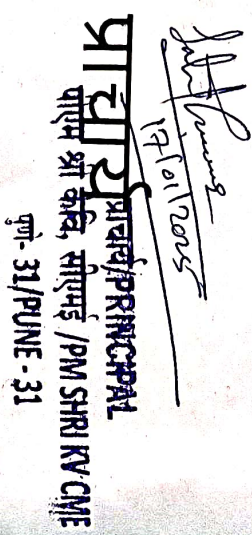 17/01/2025
प्राचार्य
प्राचार्य/PRINCIPAL
पीएम श्री केवि, सीएमई /PM SHRI KV CME
पुणे- 31/PUNE - 31